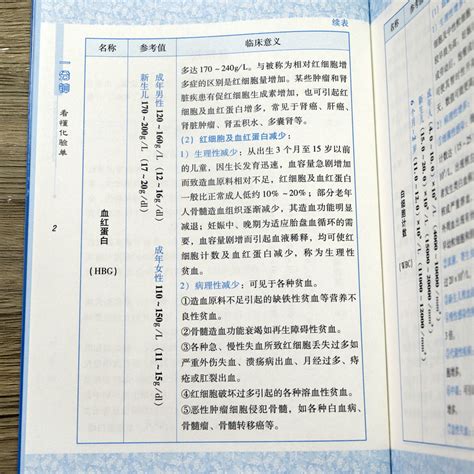 续表
名称 参考值 临床意义
血红蛋白
(HBG)
成年男性 120~160g/L (12~16g/dl)
新生儿 170~200g/L (17~20g/dl)
成年女性 110~150g/L (11~15g/dl)
多达 170~240g/L。与被称为相对红细胞增
多症的区别是红细胞量增加。某些肿瘤和肾
脏疾患有促红细胞生成素增加,也可引起红
细胞及血红蛋白增多,常见于肾癌、肝癌、
肾脏肿瘤、肾盂积水、多囊肾等。
(2)红细胞及血红蛋白减少:
1)生理性减少:从出生 3 个月至 15 岁以前
的儿童,因生长发育迅速,血容量急剧增加
而致造血原料相对不足,红细胞及血红蛋白
一般比正常成人低约 10%~20%;部分老年
人骨髓造血组织逐渐减少,其造血功能明显
减退;妊娠中、晚期为适应胎盘血循环的需
要,血容量剧增而引起血液稀释,均可使红
细胞计数及血红蛋白减少,称为生理性
贫血。
2)病理性减少:可见于各种贫血。
①造血原料不足引起的缺铁性贫血等营养不
良性贫血。
②骨髓造血功能衰竭如再生障碍性贫血。
③各种急、慢性失血所致红细胞丢失过多如
严重外伤失血、溃疡病出血、月经过多、痔
疮或肛裂出血。
④红细胞破坏过多引起的各种溶血性贫血。
⑤恶性肿瘤细胞侵犯骨髓,如各种白血病、
骨髓瘤、骨髓转移癌等。
看懂化验单
2
(WBC)